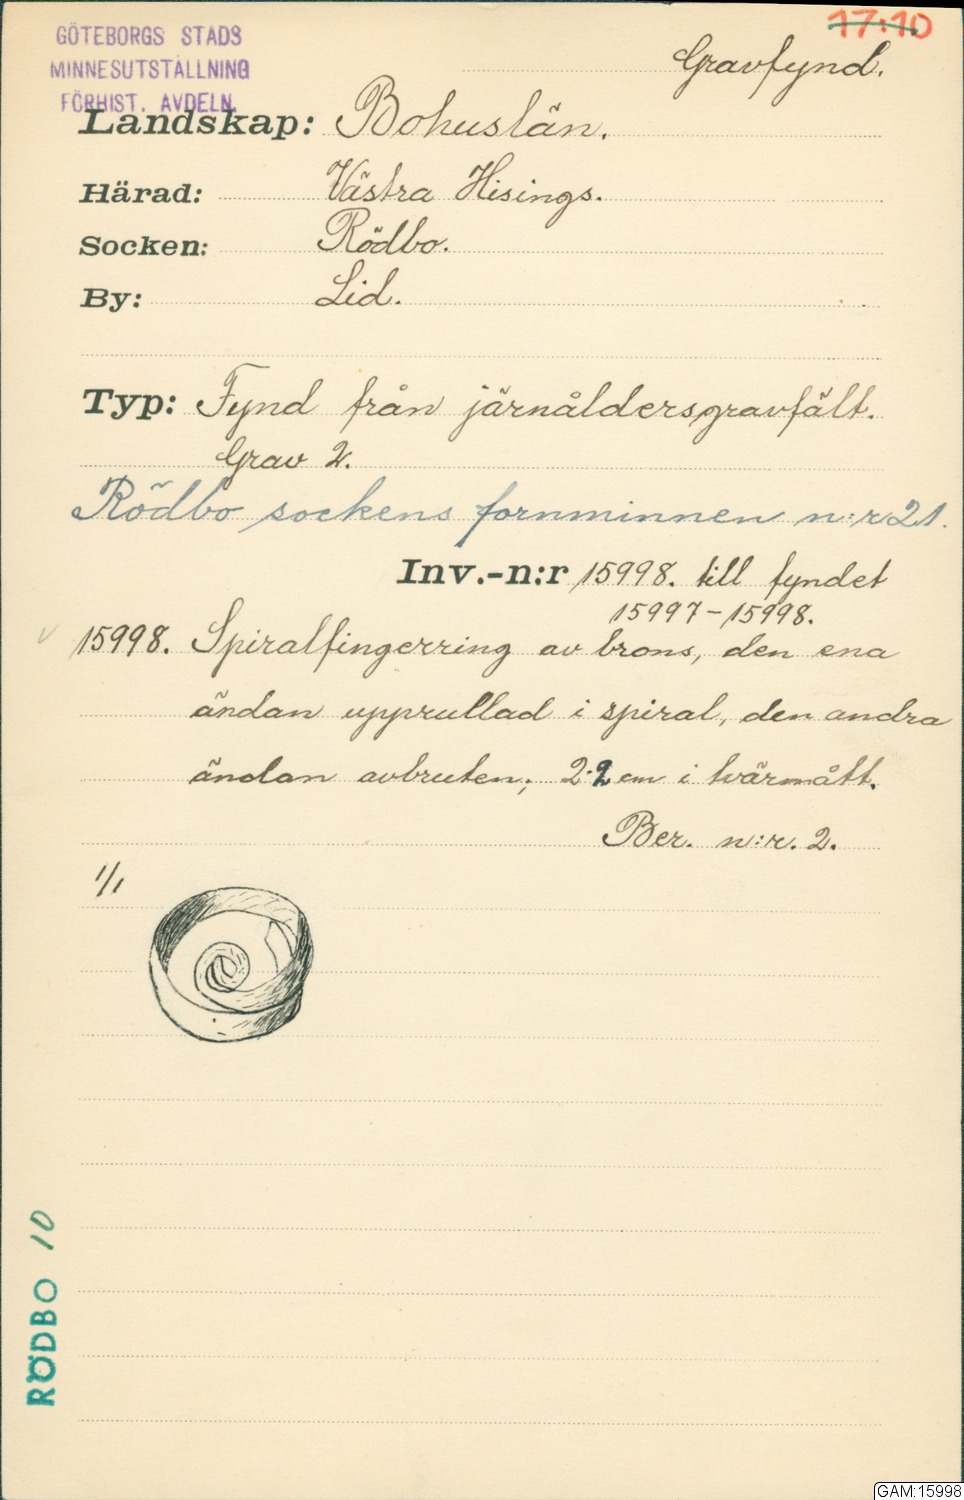 17:10
GÖTEBORGS STADS
MINNESUTSTÄLLNING
FÖRHIST. AVDELN.
Gravfynd.
Landskap: Bohuslän.
Härad: Västra Hisings.
Socken: Rödbo.
By: Lid.
Typ: Fynd från järnåldersgravfält.
Grav 2.
Rödbo sockens fornminnen n:r 21.
Inv.-n:r 15998. till fyndet
15997-15998.
15998. Spiralfingerring av brons, den ena
ändan upprullad i spiral, den andra
ändan avbruten; 2.2 cm i tvärmått.
Ber. n:r. 2.
1/1
RÖDBO 10
GAM:15998